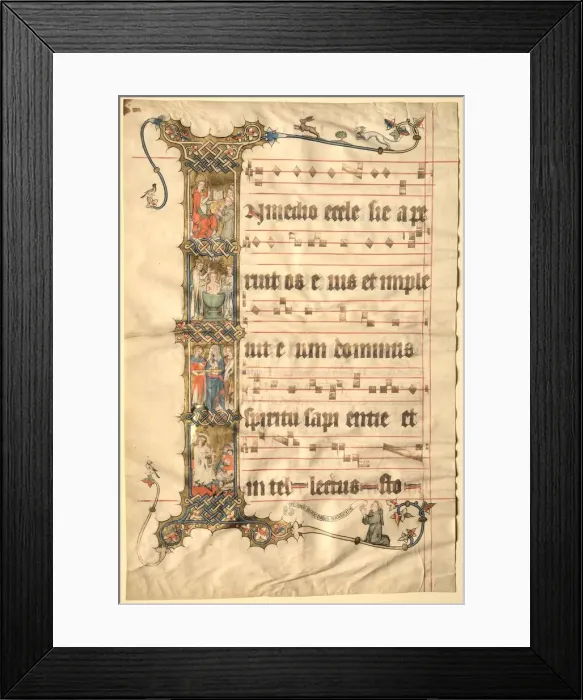 In medio eccle sie a pe
ruit os e ius et imple
uit e um dominus
spiritu sapi entie et
in tel lectus sto